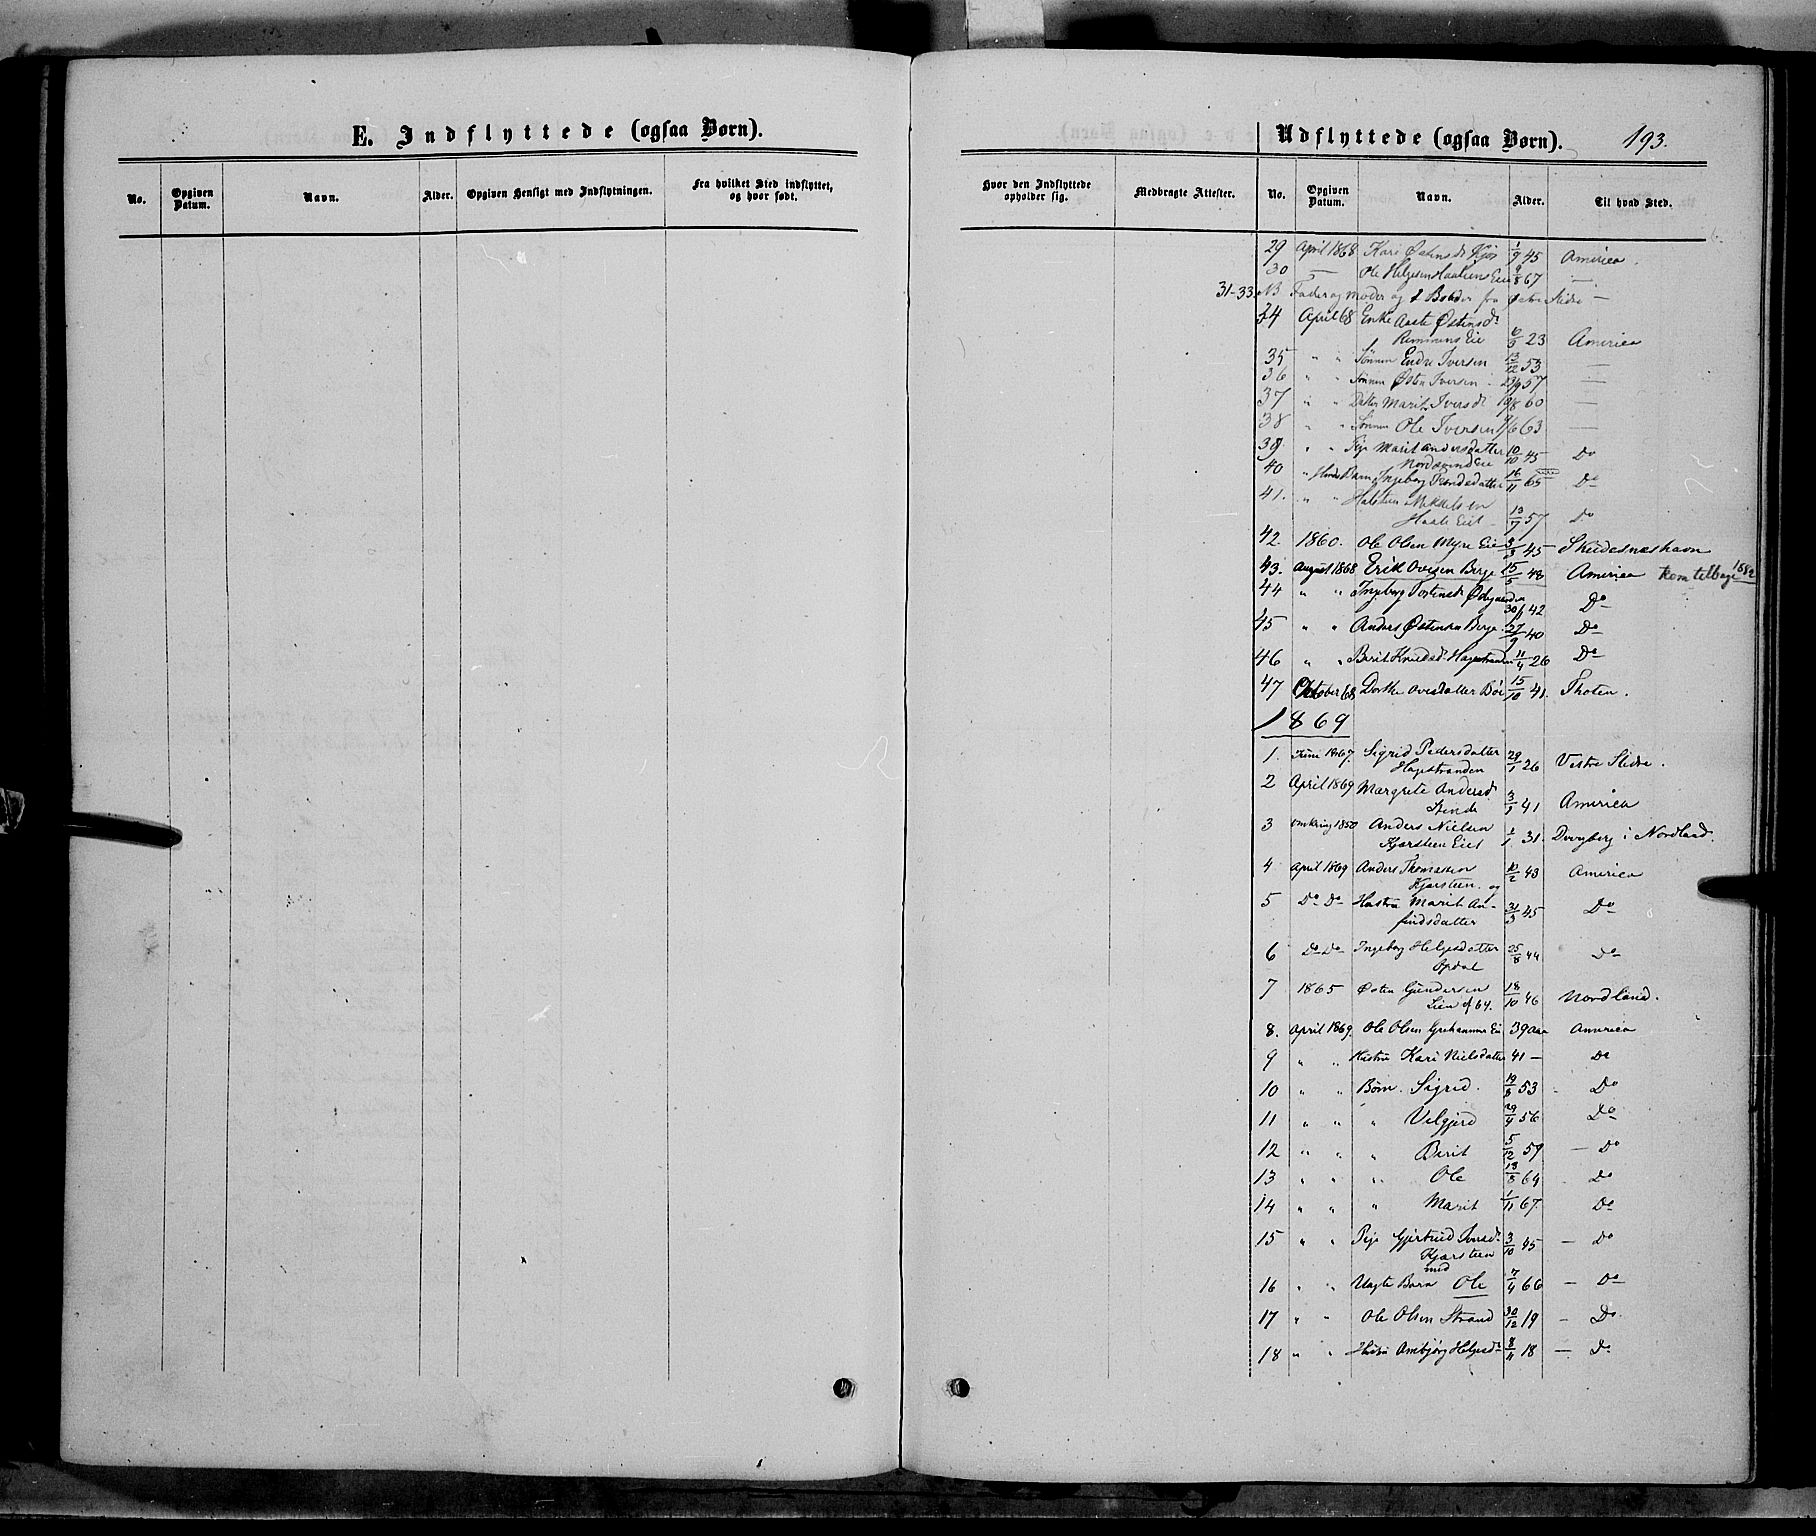 E. Indflyttede (ogsaa Børn).
No. Opgiven Datum. Navn. Alder. Opgiven Hensigt med Indflytningen. Fra hvilket Sted indflyttet, og hvor født.
Udflyttede (ogsaa Børn). 193.
Hvor den Indflyttede opholder sig. Medbragte Attester. No. Opgiven Datum. Navn. Alder. Til hvad Sted.
29 April 1868 Kari Østensdr Kjøs 1/9 45 America.
30 — Ole Helgesen Haaliens Eie 9/8 67 —
31-33 NB Fader og Moder og fra Østre Slidre —
34 April 68 Enke Aaste Østensdr
Remmens Eie 6/5 23 America
35 " " Sønnen Endre Iversen 13/12 53 —
36 " " Sønnen Østen Iversen 23/9 57 —
37 " " Datter Marit Iversdr 19/8 60 —
38 " " Sønnen Ole Iversen 9/6 63 —
39 " " Pige Marit Andersdatter
Eie 10/10 45 Do
40 " Hendes Barn Ingeborg datter 16/11 65 Do
41. " " Halsteen Mikkelsen
Eiet 13/7 57 Do
42. 1860. Ole Olsen Myre Eie 3/3 45 Skudesneshavn
43. August 1868 Erik Ovesen Berge 15/5 48 America kom tilbage 1882
44 " " Ingeborg Tostensdr Ødegaarden
30/1 42 Do
45 " " Anders Østensen Berge 27/9 40 Do
46 " " Berit Knudsdr Hagestranden 11/4 26 Do
47 October 68 Dorthe Ovesdatter Bøe 15/10 41. Thoten.
1869
1. Juni 1867. Sigrid Pedersdatter
Hagestranden 29/1 26 Vestre Slidre.
2 April 1869 Margrete Andersdr
3/9 41 America
3 omkring 1850 Anders Nielsen
Kjørsteen Eiet 1/1 31. i Nordland.
4 April 1869 Anders Thomassen
Kjørsteen og 10/2 43 America
5 Do Do Hustru Marit An-
findsdatter 31/3 45 Do
6 Do Do Ingeborg Helgesdatter
Opdal 25/8 44 Do
7 1865 Østen Gundersen
Lien 18/10 46 Nordland.
8. April 1869. Ole Olsen Ei 39 Aar America
9 " " Hustru Kari Nielsdatter 41 — Do
10 " " Børn. Sigrid. 19/8 53 Do
11 " " " Velgjerd 29/4 56 Do
12 " " " Berit 5/12 59 — Do
13 " " " Ole 13/8 64 Do
14 " " " Marit 1/11 67. Do
15 " " Pige Gjertrud Iversdr
Kjørsteen 3/10 45 — Do
med
16 " " Uægte Barn Ole 7/4 66 — Do
17 " " Ole Olsen Strand 30/12 19 — Do
18 " " Hustru Ambjørg Helgesdr 8/11 18 — Do